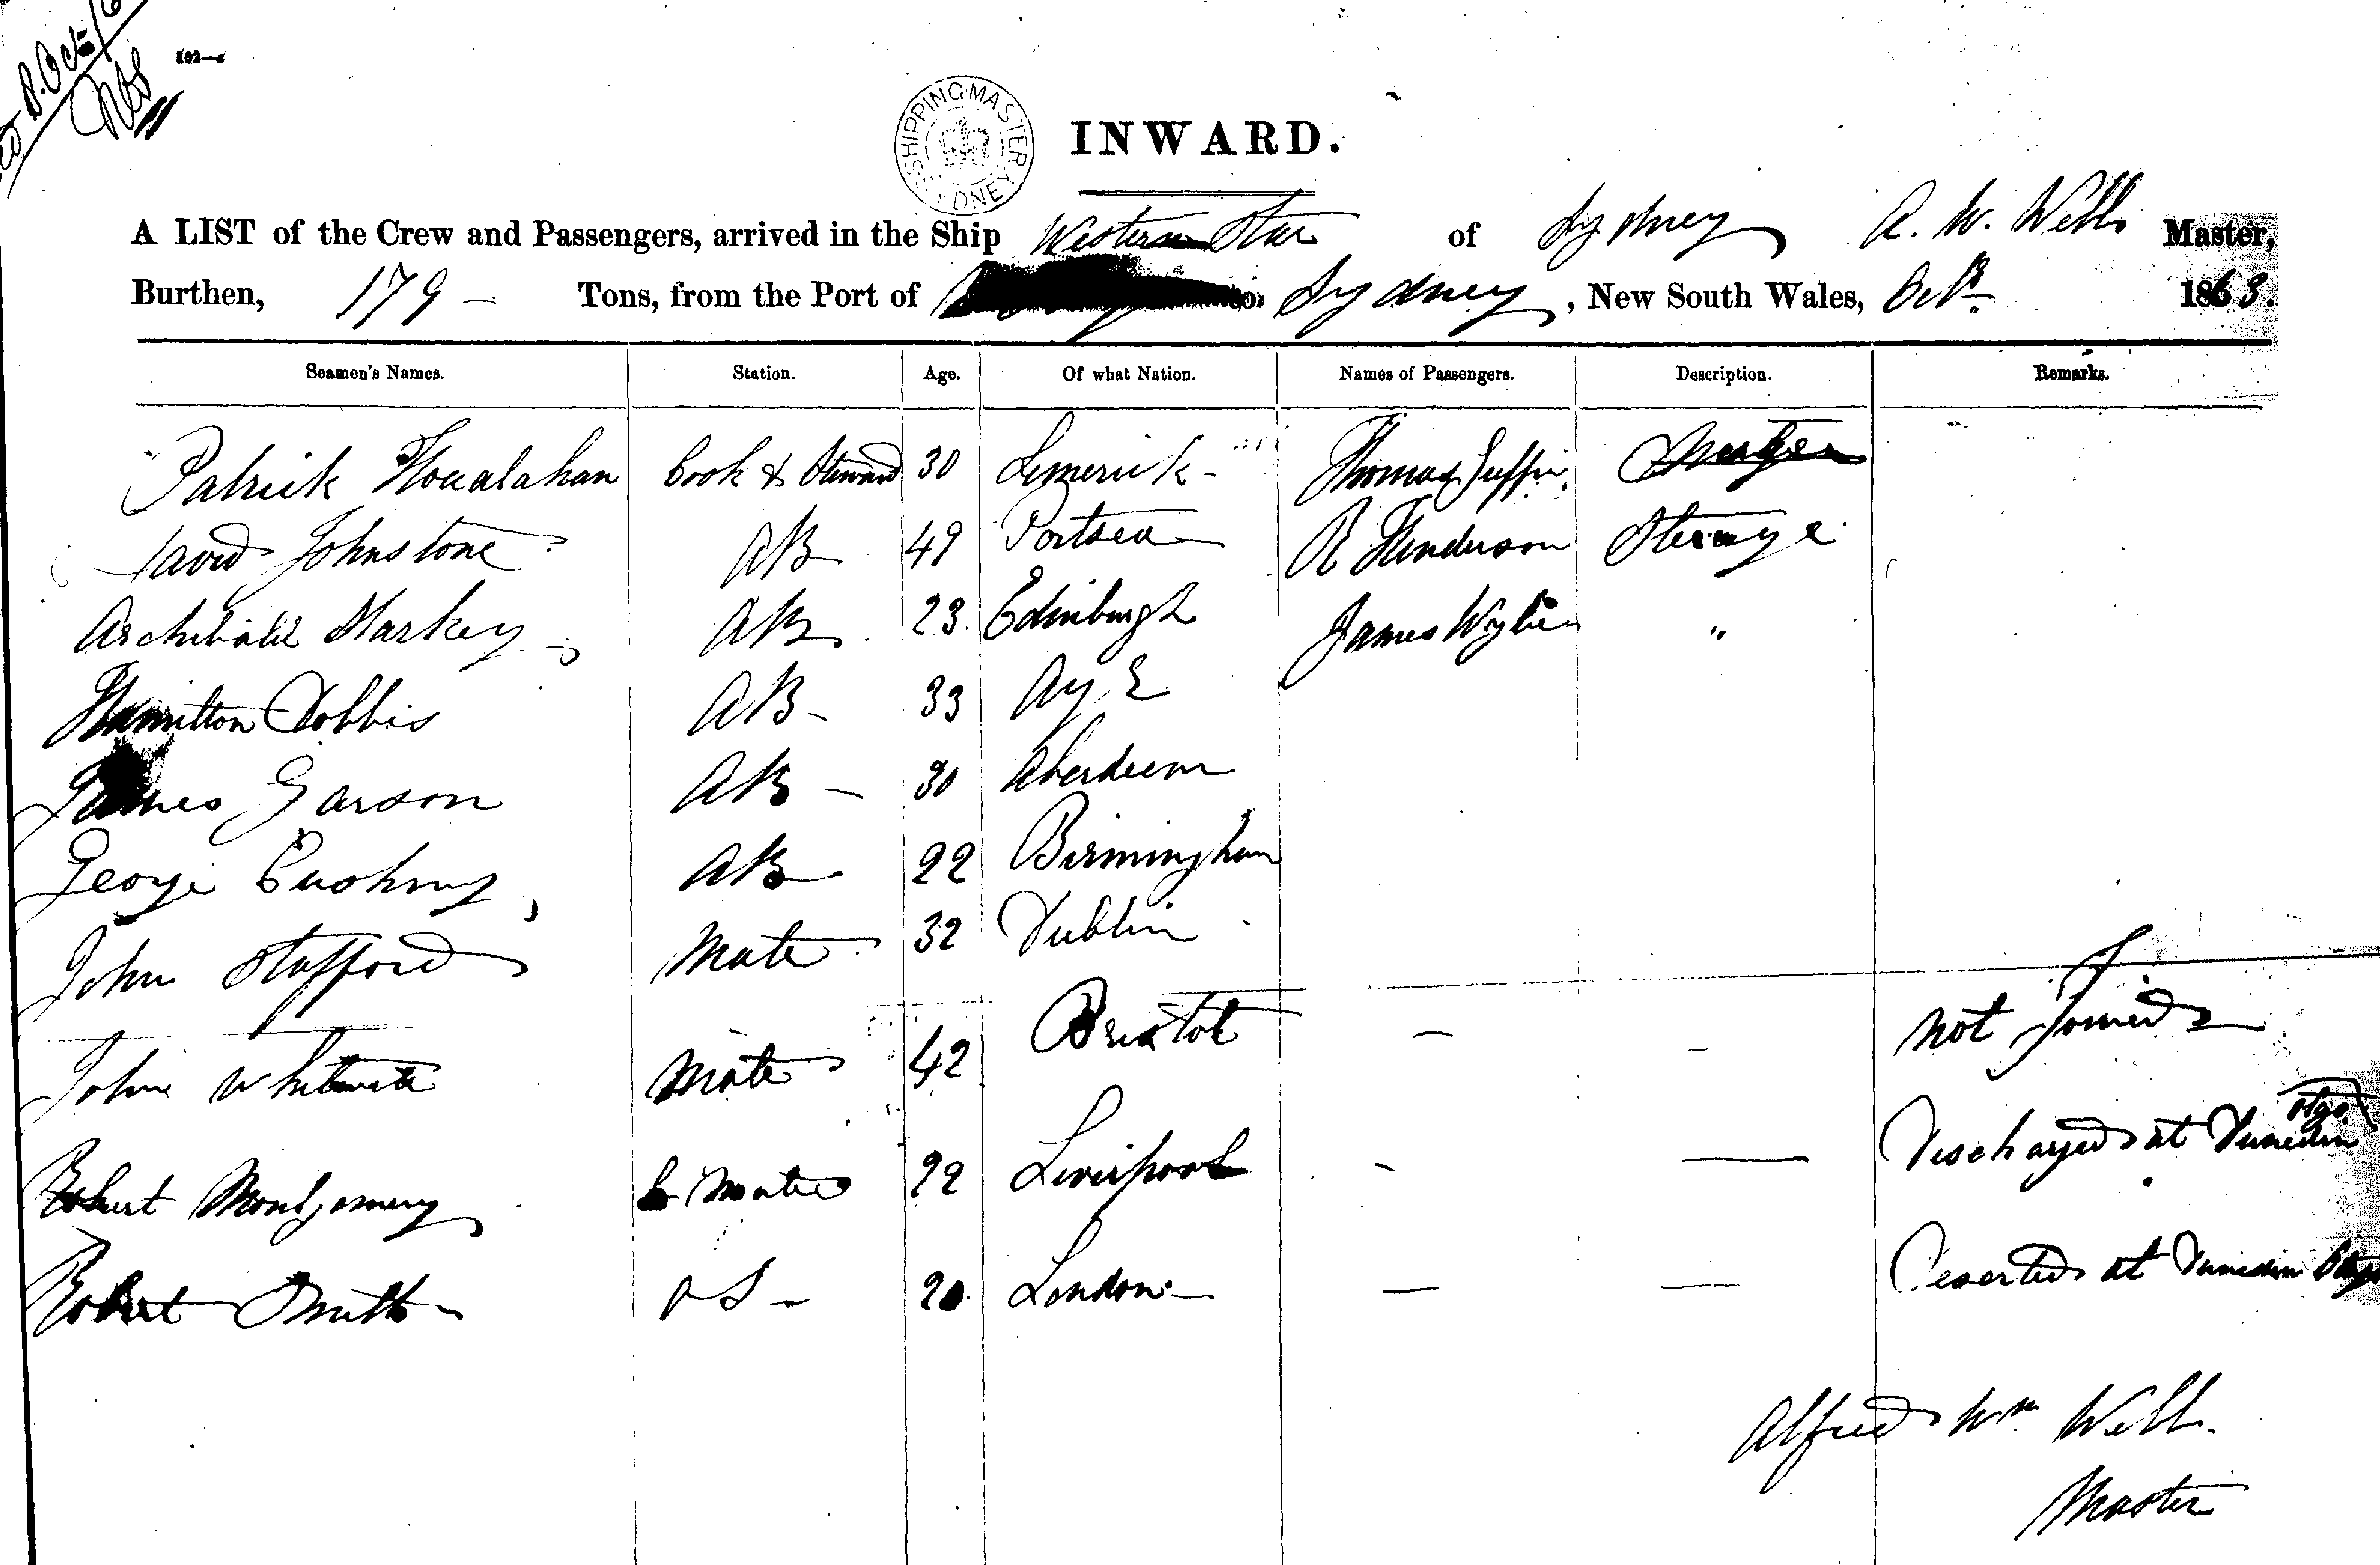 102—c
SHIPPING MASTER SYDNEY
INWARD.
A LIST of the Crew and Passengers, arrived in the Ship Western Star of Sydney A. W. Webb Master,
Burthen, 179 — Tons, from the Port of to Sydney, New South Wales, Octr 1863.
Seamen's Names. Station. Age. Of what Nation. Names of Passengers. Description. Remarks.
Patrick Cook & Steward 30 Limerick Thomas
David Johnstone AB 49 Portsea R Henderson Steerage
Archibald Starkey AB 23. Edinburgh James Wylie "
Hamilton Dobbis AB 33
James Garson AB 30 Aberdeen
George AB 22 Birmingham
John Stafford Mate 32 Dublin
John Mate 42 Bristol — — Not Joined
Robert Montgomery Mate 22 Liverpool - — Discharged at Dunedin Otgo
Robert Smith OS 20 London — — Deserted at Dunedin
Alfred Wm Webb.
Master